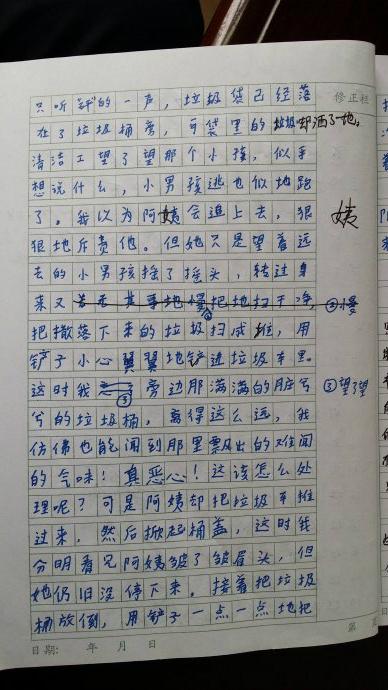 只听“砰”的一声，垃圾袋已经落 修正栏
在了垃圾桶旁，可袋里的垃圾却洒了一地。
清洁工望了望那个小孩，似乎
想说什么，小男孩逃也似地跑
了。我以为阿姨会追上去，狠 姨
狠地斥责他。但她只是望着远
去的小男孩摇了摇头，转过身
来又 把地扫干净， ②慢
把撒落下来的垃圾扫成堆，用
铲子小心翼翼地铲进垃圾车里。
这时我 ③ 旁边那满满的脏兮 ③望了望
兮的垃圾桶，离得这么远，我
仿佛也能闻到那里飘出的难闻
的气味！真恶心！这该怎么处
理呢？可是阿姨却把垃圾车推
过来，然后掀起桶盖，这时我
分明看见阿姨皱了皱眉头，但
她仍旧没停下来。接着把垃圾
桶放倒，用铲子一点一点地把
日期： 年 月 日 第